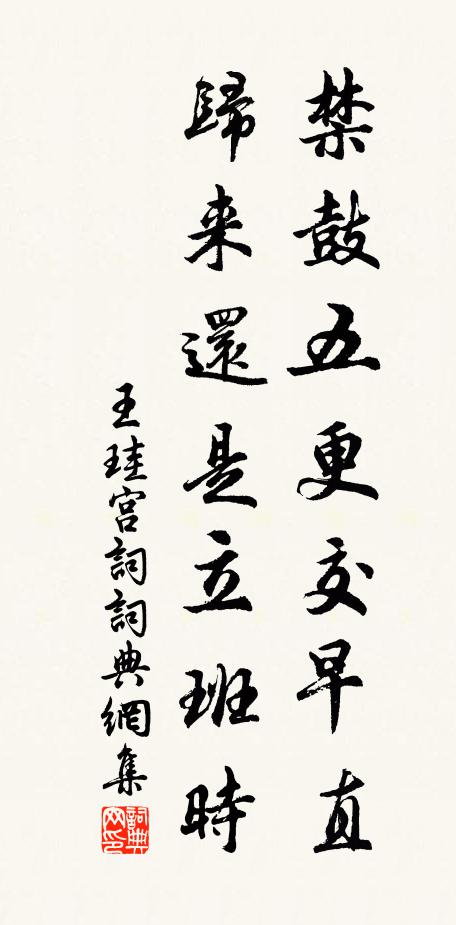 禁鼓五更交早直
歸来還是立班時
王珪宮詞詞典網集
詞典网印